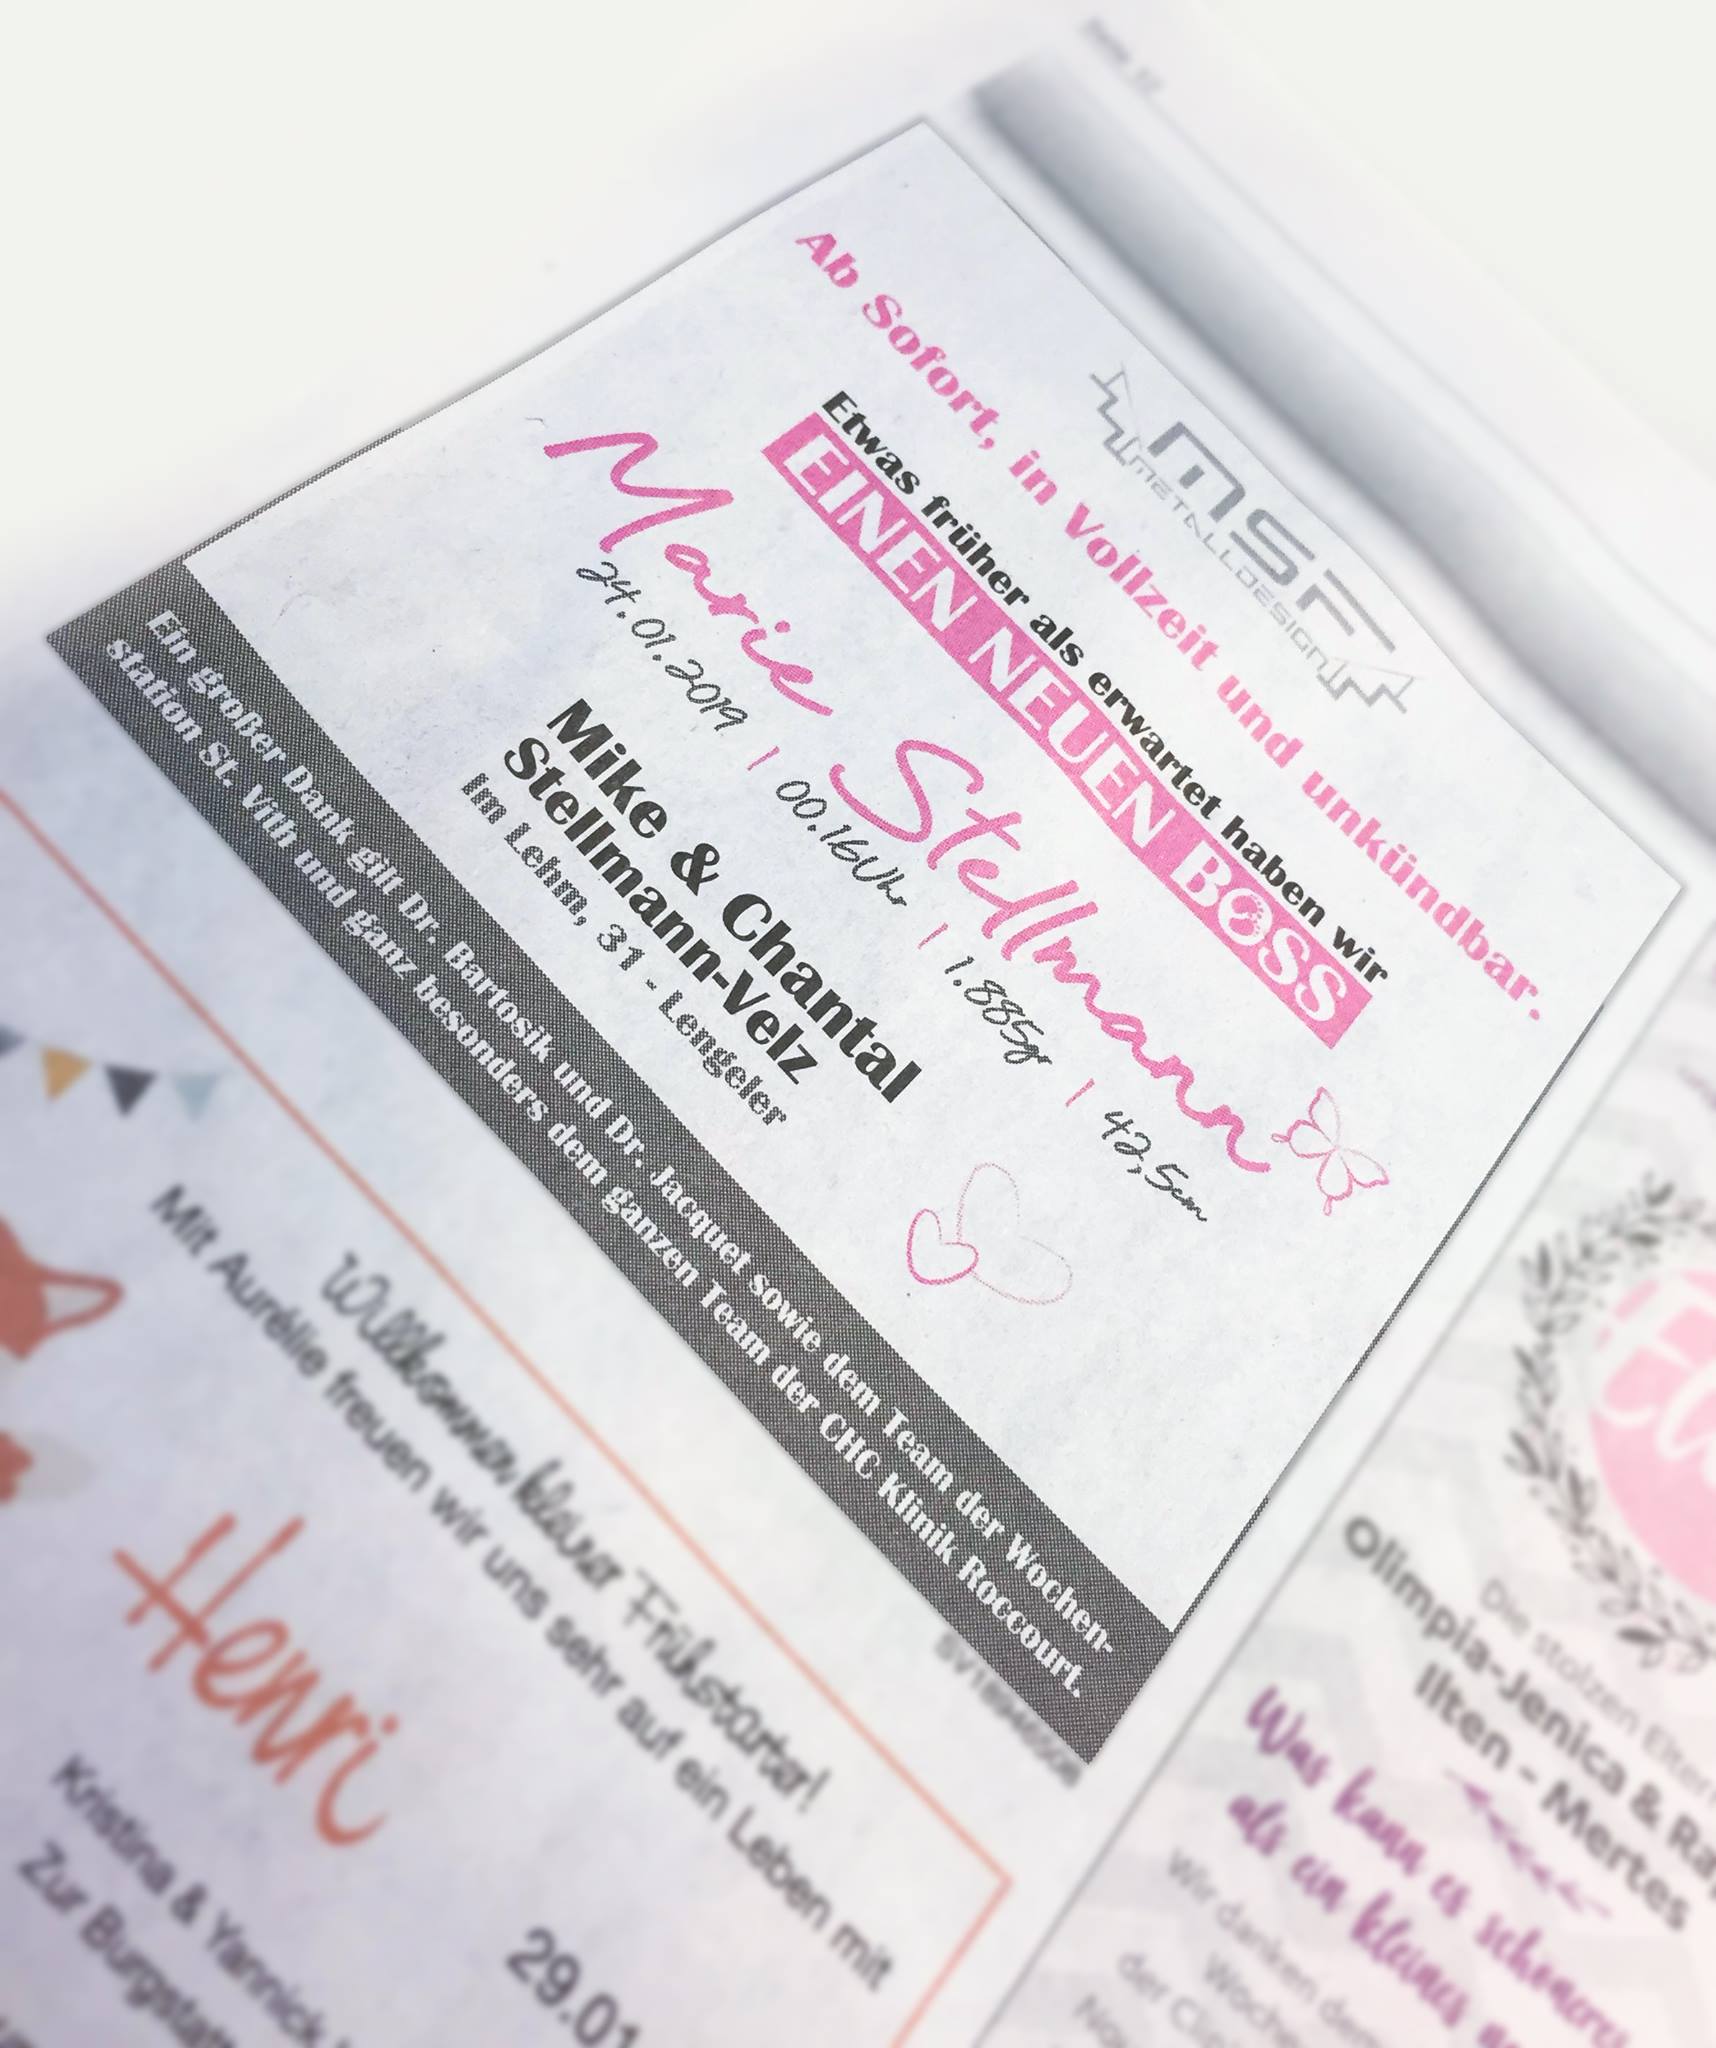 MSF
METALLDESIGN
Ab Sofort, in Vollzeit und unkündbar.
Etwas früher als erwartet haben wir
EINEN NEUEN BOSS
Marie Stellmann
24.01.2019 | 00.16Uhr | 1.885gr | 42,5cm
Mike & Chantal
Stellmann-Velz
Im Lehm, 31 - Lengeler
Ein großer Dank gilt Dr. Bartosik und Dr. Jacquet sowie dem Team der Wochen-
station St. Vith und ganz besonders dem ganzen Team der CHC Klinik Roccourt.
Willkommen kleiner Frühstarter!
Mit Aurélie freuen wir uns sehr auf ein Leben mit
Henri
29.01
Kristina & Yannick
Zur Burgstatt
Die stolzen Eltern
Olimpia-Jenica & Ra
Ilten - Mertes
Was kann es schöneres
als ein kleines
Wir danken dem
Woche
der Clip